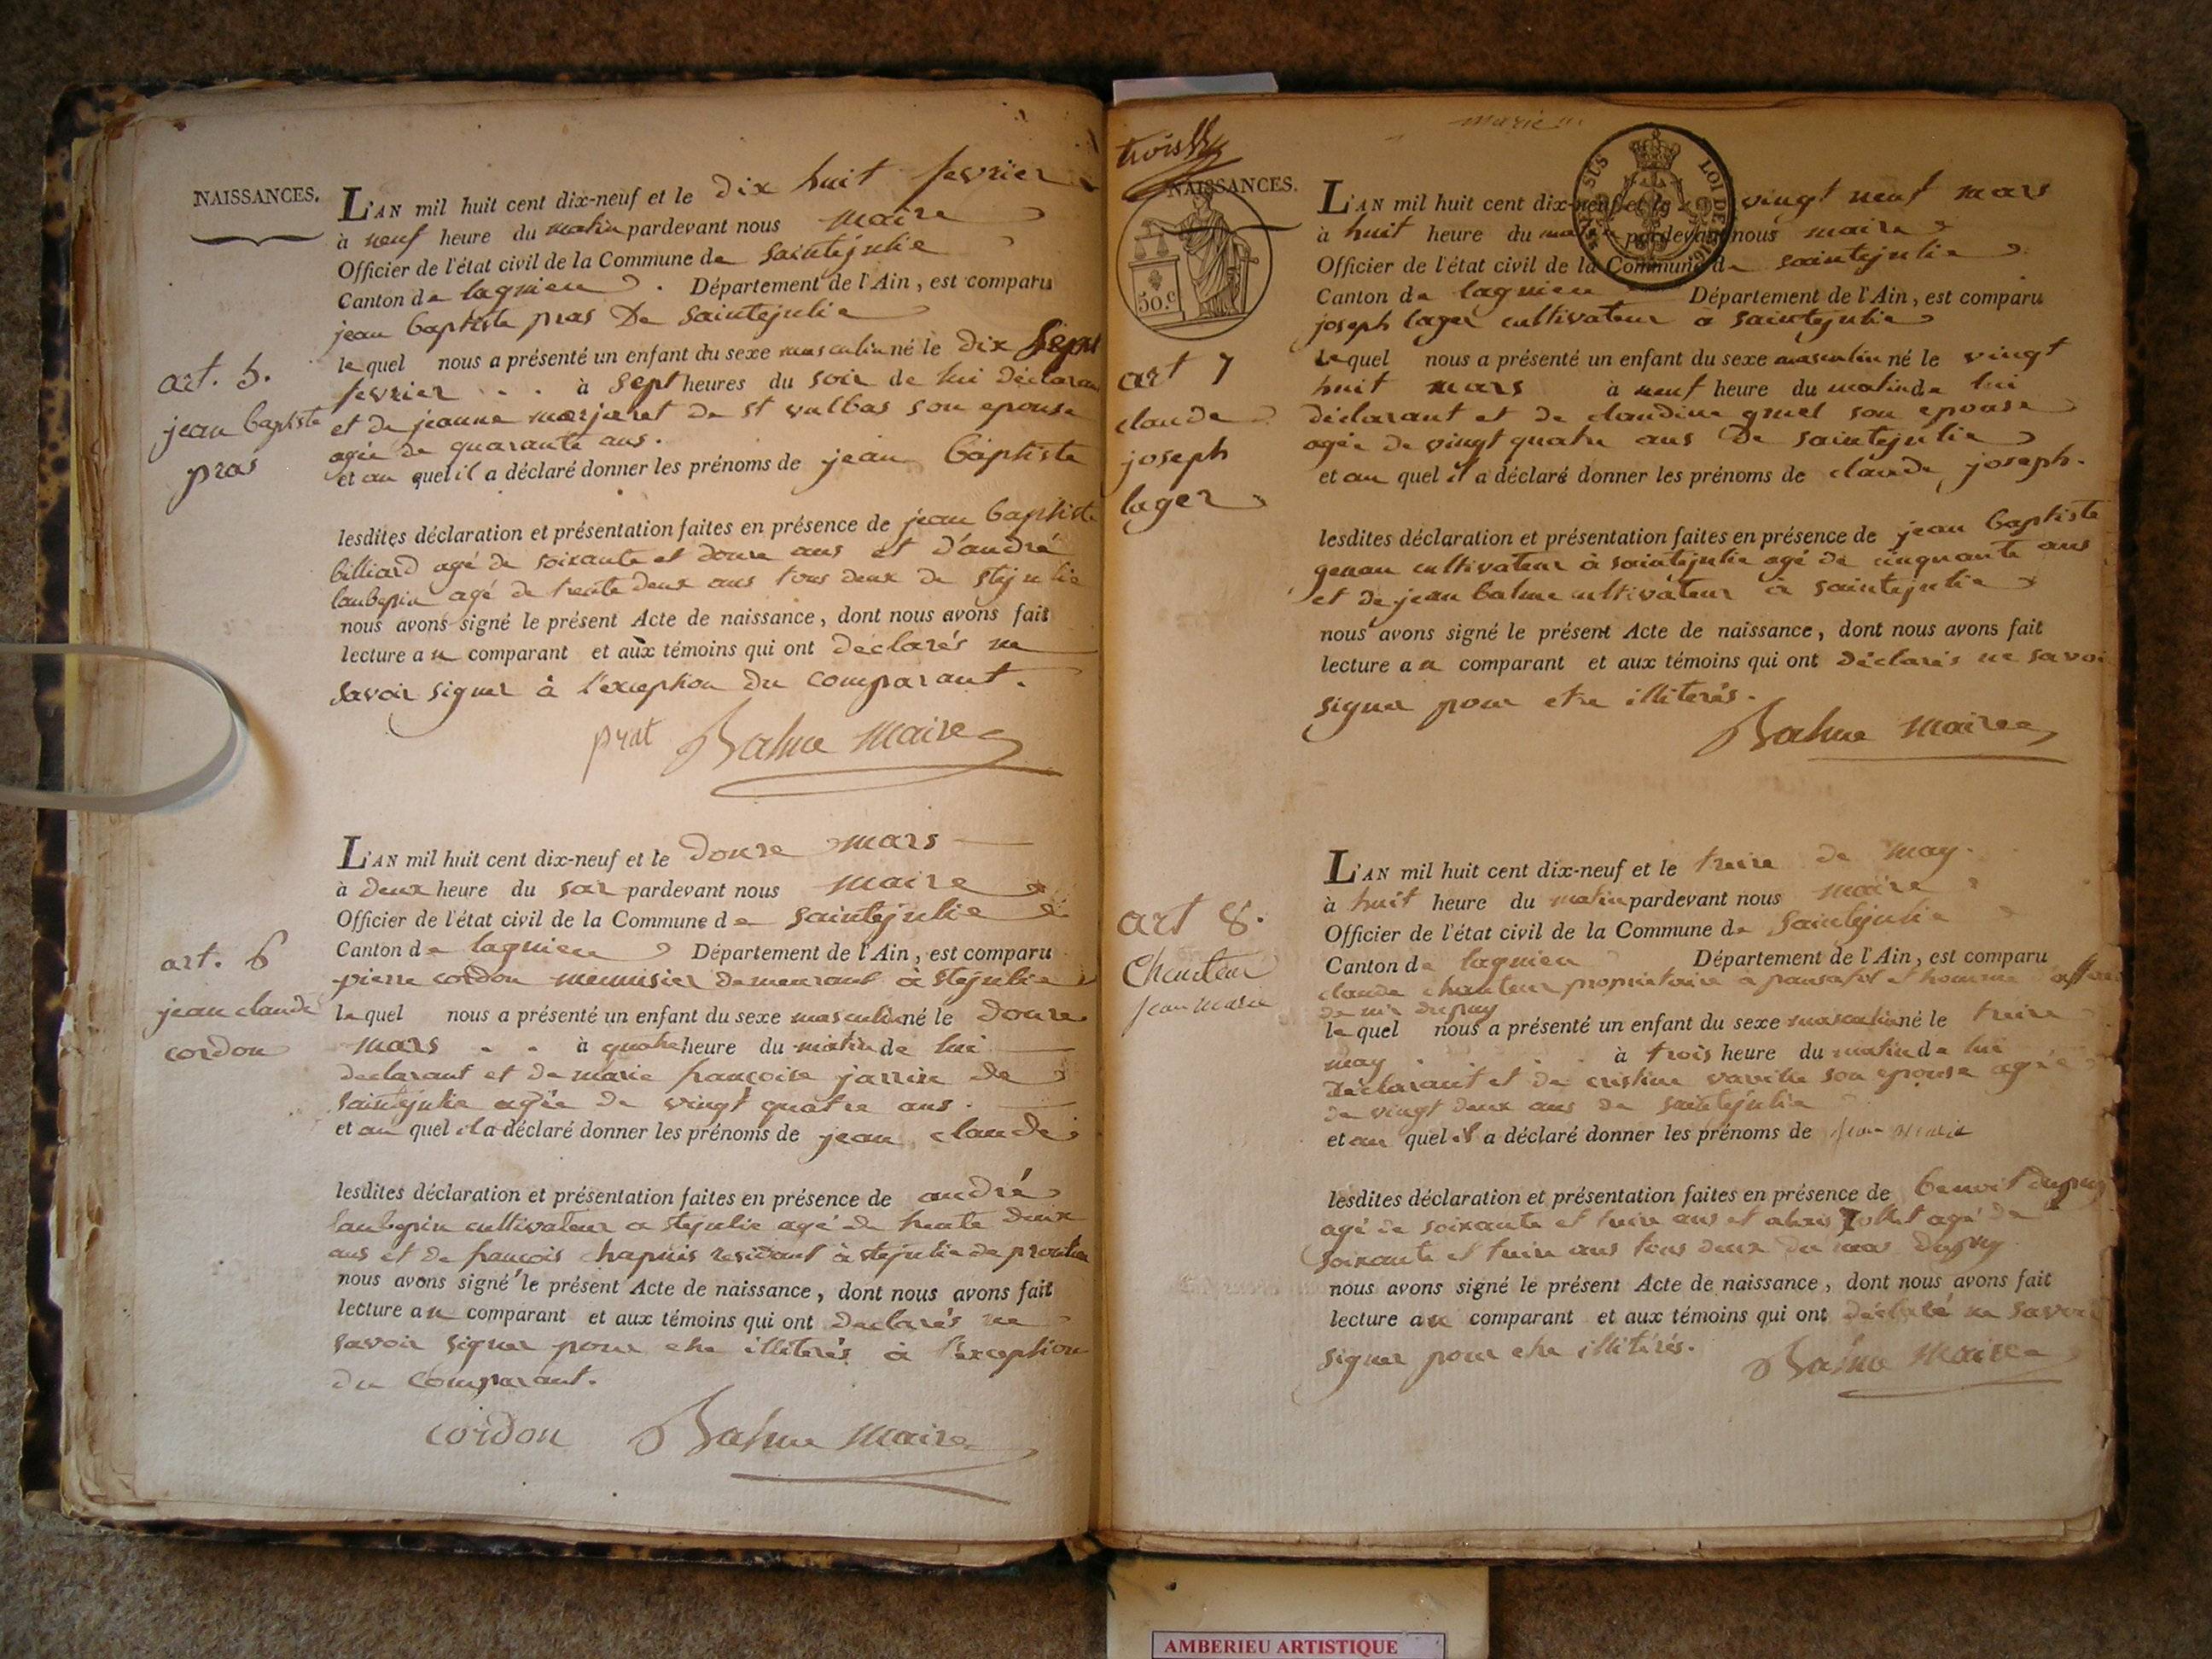 NAISSANCES.
L'AN mil huit cent dix-neuf et le dix huit fevrier
à neuf heure du matin pardevant nous maire
Officier de l'état civil de la Commune de saintejulie
Canton de lagnieu. Département de l'Ain, est comparu
jean baptiste pras De saintejulie
lequel nous a présenté un enfant du sexe masculin né le dix sept
fevrier . . à sept heures du soir de lui déclarant
et de jeanne marjaret de st vulbas son epouse
agée de quarante ans.
et au quel il a déclaré donner les prénoms de jean baptiste
art. 5.
jean baptiste
pras
lesdites déclaration et présentation faites en présence de jean baptiste
billiard agé de soixante et douze ans et d'andré
laubepin agé de trente deux ans tous deux de stejulie
nous avons signé le présent Acte de naissance, dont nous avons fait
lecture au comparant et aux témoins qui ont déclarés ne
savoir signer à l'exception du comparant.
prat Balme maire
L'AN mil huit cent dix-neuf et le douze mars
à deux heure du soir pardevant nous maire
Officier de l'état civil de la Commune de saintejulie
Canton de lagnieu Département de l'Ain, est comparu
pierre cordon menuisier demeurant à stejulie
lequel nous a présenté un enfant du sexe masculin né le douze
mars . . à quatre heure du matin de lui
declarant et de marie françoise jarrin de
saintejulie agée de vingt quatre ans.
et au quel il a déclaré donner les prénoms de jean claude
art. 6
jean claude
cordon
lesdites déclaration et présentation faites en présence de andré
laubepin cultivateur a stejulie agé de trente deux
ans et de françois chapuis residant à stejulie de
nous avons signé le présent Acte de naissance, dont nous avons fait
lecture au comparant et aux témoins qui ont declarés ne
savoir signer pour etre illiterés à l'exception
du comparant.
cordon Balme maire
trois
NAISSANCES.
50.c
L'AN mil huit cent dix-neuf et le vingt neuf mars
à huit heure du matin pardevant nous maire
Officier de l'état civil de la Commune de saintejulie
Canton de lagnieu Département de l'Ain, est comparu
joseph lager cultivateur a saintejulie
lequel nous a présenté un enfant du sexe masculin né le vingt
huit mars à neuf heure du matin de lui
déclarant et de claudine gruel son epouse
agée de vingt quatre ans de saintejulie
et au quel il a déclaré donner les prénoms de claude joseph.
art 7
claude
joseph
lager
lesdites déclaration et présentation faites en présence de jean baptiste
genau cultivateur à saintejulie agé de cinquante ans
et de jean balme cultivateur à saintejulie
nous avons signé le présent Acte de naissance, dont nous avons fait
lecture au comparant et aux témoins qui ont déclarés ne savoir
signer pour etre illiterés.
Balme maire
L'AN mil huit cent dix-neuf et le treize de may.
à huit heure du matin pardevant nous maire
Officier de l'état civil de la Commune de saintejulie
Canton de lagnieu Département de l'Ain, est comparu
claude chanteur proprietaire à et homme
de mr dupuy
lequel nous a présenté un enfant du sexe masculin né le treize
may . . à trois heure du matin de lui
déclarant et de cristine son epouse agée
de vingt deux ans de saintejulie
et au quel il a déclaré donner les prénoms de jean marie
art 8.
Chanteur
jean marie
lesdites déclaration et présentation faites en présence de benoit dupuy
agé de soixante et treize ans et agé de
soixante et treize ans tous deux du mas dupuy
nous avons signé le présent Acte de naissance, dont nous avons fait
lecture au comparant et aux témoins qui ont déclaré ne savoir
signer pour etre illitérés.
Balme maire
AMBERIEU ARTISTIQUE